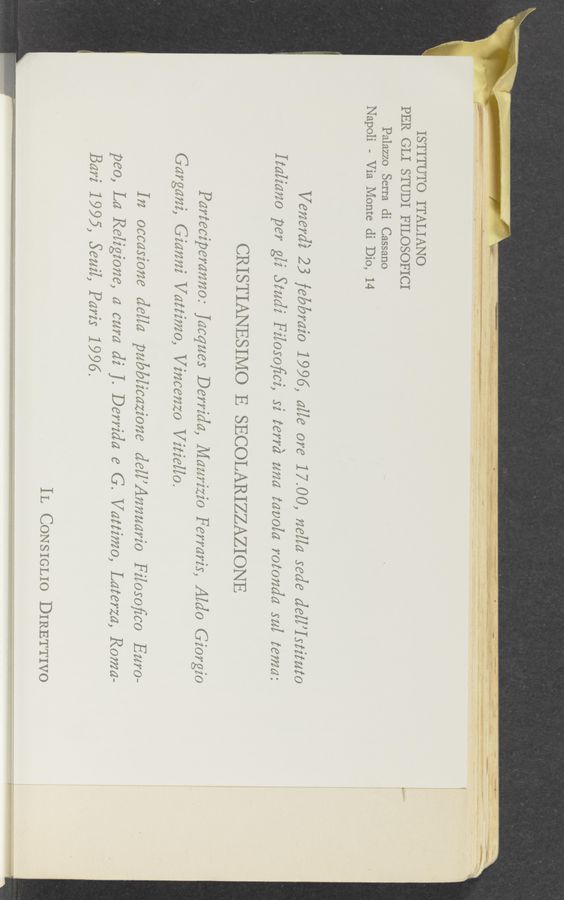 ISTITUTO ITALIANO
PER GLI STUDI FILOSOFICI
Palazzo Serra di Cassano
Napoli - Via Monte di Dio, 14
Venerdì 23 febbraio 1996, alle ore 17.00, nella sede dell'Istituto
Italiano per gli Studi Filosofici, si terrà una tavola rotonda sul tema:
CRISTIANESIMO E SECOLARIZZAZIONE
Parteciperanno: Jacques Derrida, Maurizio Ferraris, Aldo Giorgio
Gargani, Gianni Vattimo, Vincenzo Vitiello.
In occasione della pubblicazione dell'Annuario Filosofico Euro-
peo, La Religione, a cura di J. Derrida e G. Vattimo, Laterza, Roma-
Bari 1995, Seuil, Paris 1996.
IL CONSIGLIO DIRETTIVO